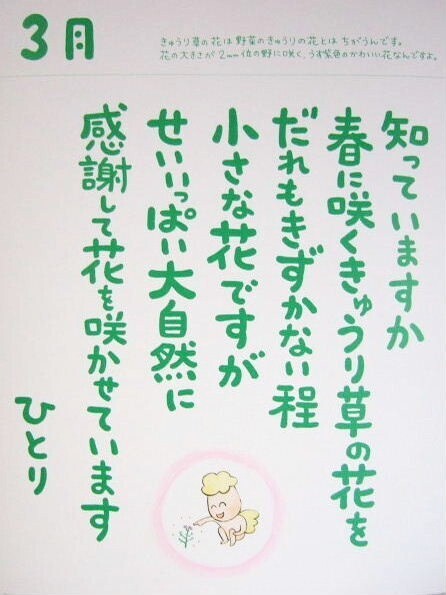 3月
きゅうり草の花は野菜のきゅうりの花とは ちがうんです。
花の大きさが 2mm位の野に咲く、うす紫色のかわいい花なんですよ。
知っていますか
春に咲くきゅうり草の花を
だれもきずかない程
小さな花ですが
せいいっぱい大自然に
感謝して花を咲かせています
ひとり